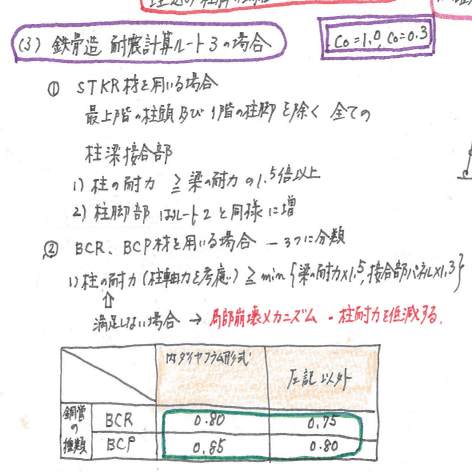 (3) 鉄骨造 耐震計算ルート3の場合
Co=1.0, Co=0.3
① STKR材を用いる場合
最上階の柱頭及び1階の柱脚を除く全ての
柱梁接合部
1) 柱の耐力 ≧ 梁の耐力の1.5倍以上
2) 柱脚部はルート2と同様に増
② BCR、BCP材を用いる場合 ― 3つに分類
1) 柱の耐力(柱軸力を考慮) ≧ min{梁の耐力×1.5, 接合部パネル×1.3}
⇧
満足しない場合 → 局部崩壊メカニズム ― 柱耐力を低減する.
内ダイヤフラム形式 左記以外
鋼管の種類
BCR 0.80 0.75
BCP 0.85 0.80